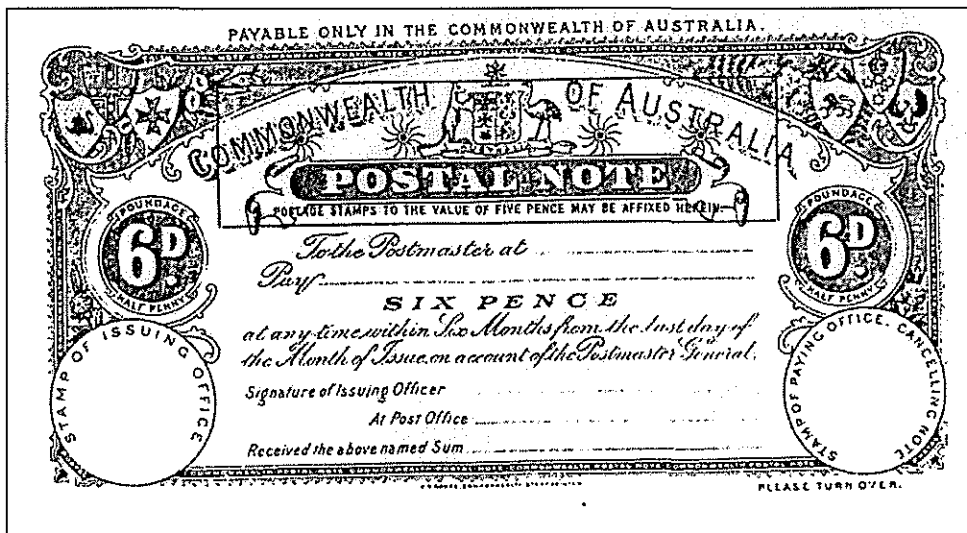 PAYABLE ONLY IN THE COMMONWEALTH OF AUSTRALIA.
COMMONWEALTH OF AUSTRALIA
POSTAL NOTE
POSTAGE STAMPS TO THE VALUE OF FIVE PENCE MAY BE AFFIXED HEREIN.
POUNDAGE
6D.
HALF PENNY
POUNDAGE
6D.
HALF PENNY
To the Postmaster at
Pay
SIX PENCE
at any time within Six Months from the last day of
the Month of Issue, on account of the Postmaster General.
STAMP OF ISSUING OFFICE
STAMP OF PAYING OFFICE, CANCELLING NOTE
Signature of Issuing Officer
At Post Office
Received the above named Sum
PLEASE TURN OVER.